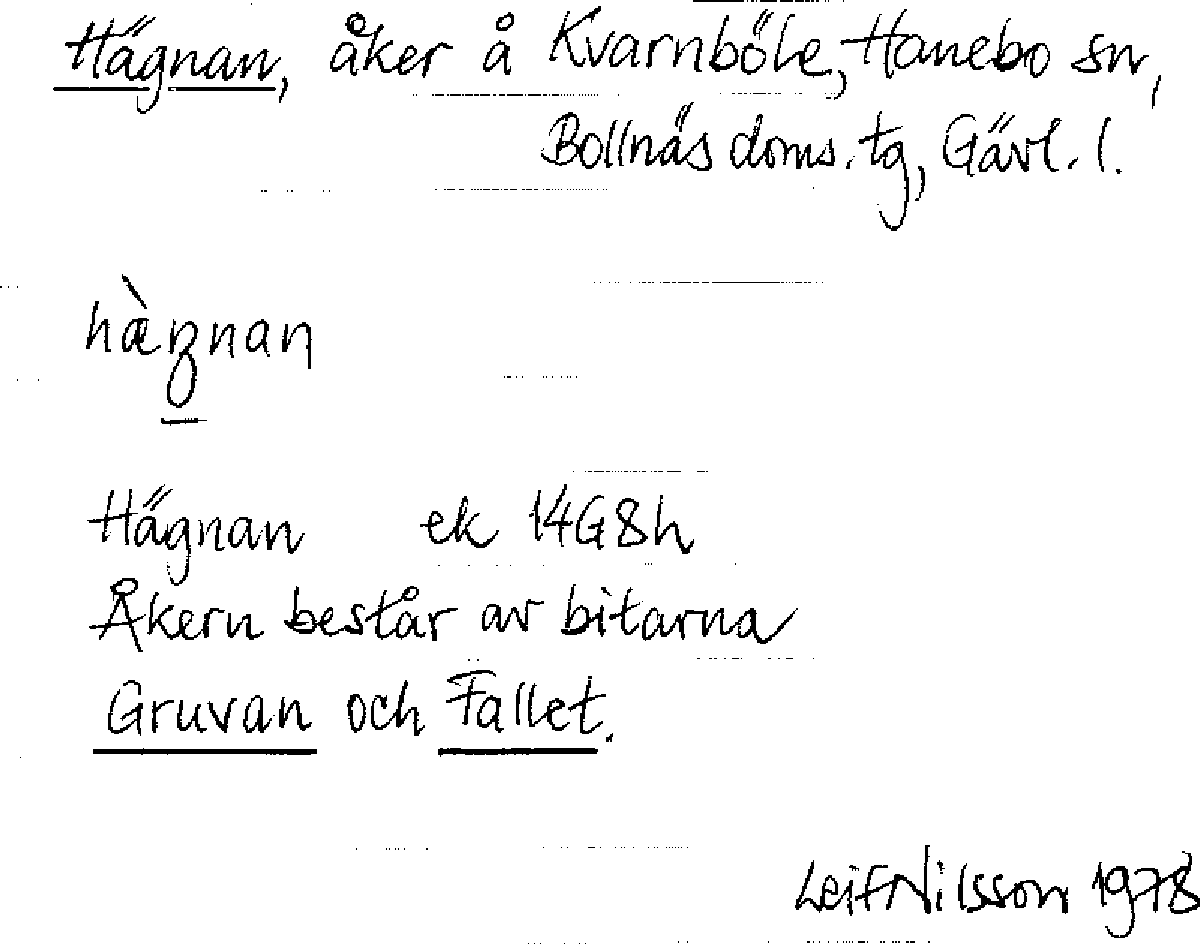 Hägnan, åker å Kvarnböle, Hanebo sn,
Bollnäs doms. tg, Gävl. l.
hæ̀gnan
Hägnan ek 14G8h
Åkern består av bitarna
Gruvan och Fallet.
Leif Nilsson 1978